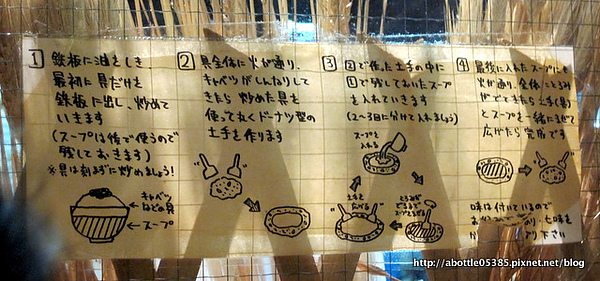 1 鉄板に油をしき
最初に具だけを
鉄板に出し、炒めて
いきます
(スープは後で使うので
残しておきます)
※具は刻まずに炒めましょう!
キャベツ
などの具
スープ
2 具全体に火が通り、
キャベツがしんなりして
きたら炒めた具を
使って丸くドーナツ型の
土手を作ります
3 2で作った土手の中に
1で残しておいたスープ
を入れていきます
(2~3回に分けて入れましょう)
スープを
入れる
土手を
広げる
とろみが
でるまで
4 最後に入れたスープにも
火が通り、全体にとろみ
がでてきたら土手(具)
とスープを一緒にまぜて
広げたら完成です
味は付いているので
七味を
下さい
http://abottle05385.pixnet.net/blog